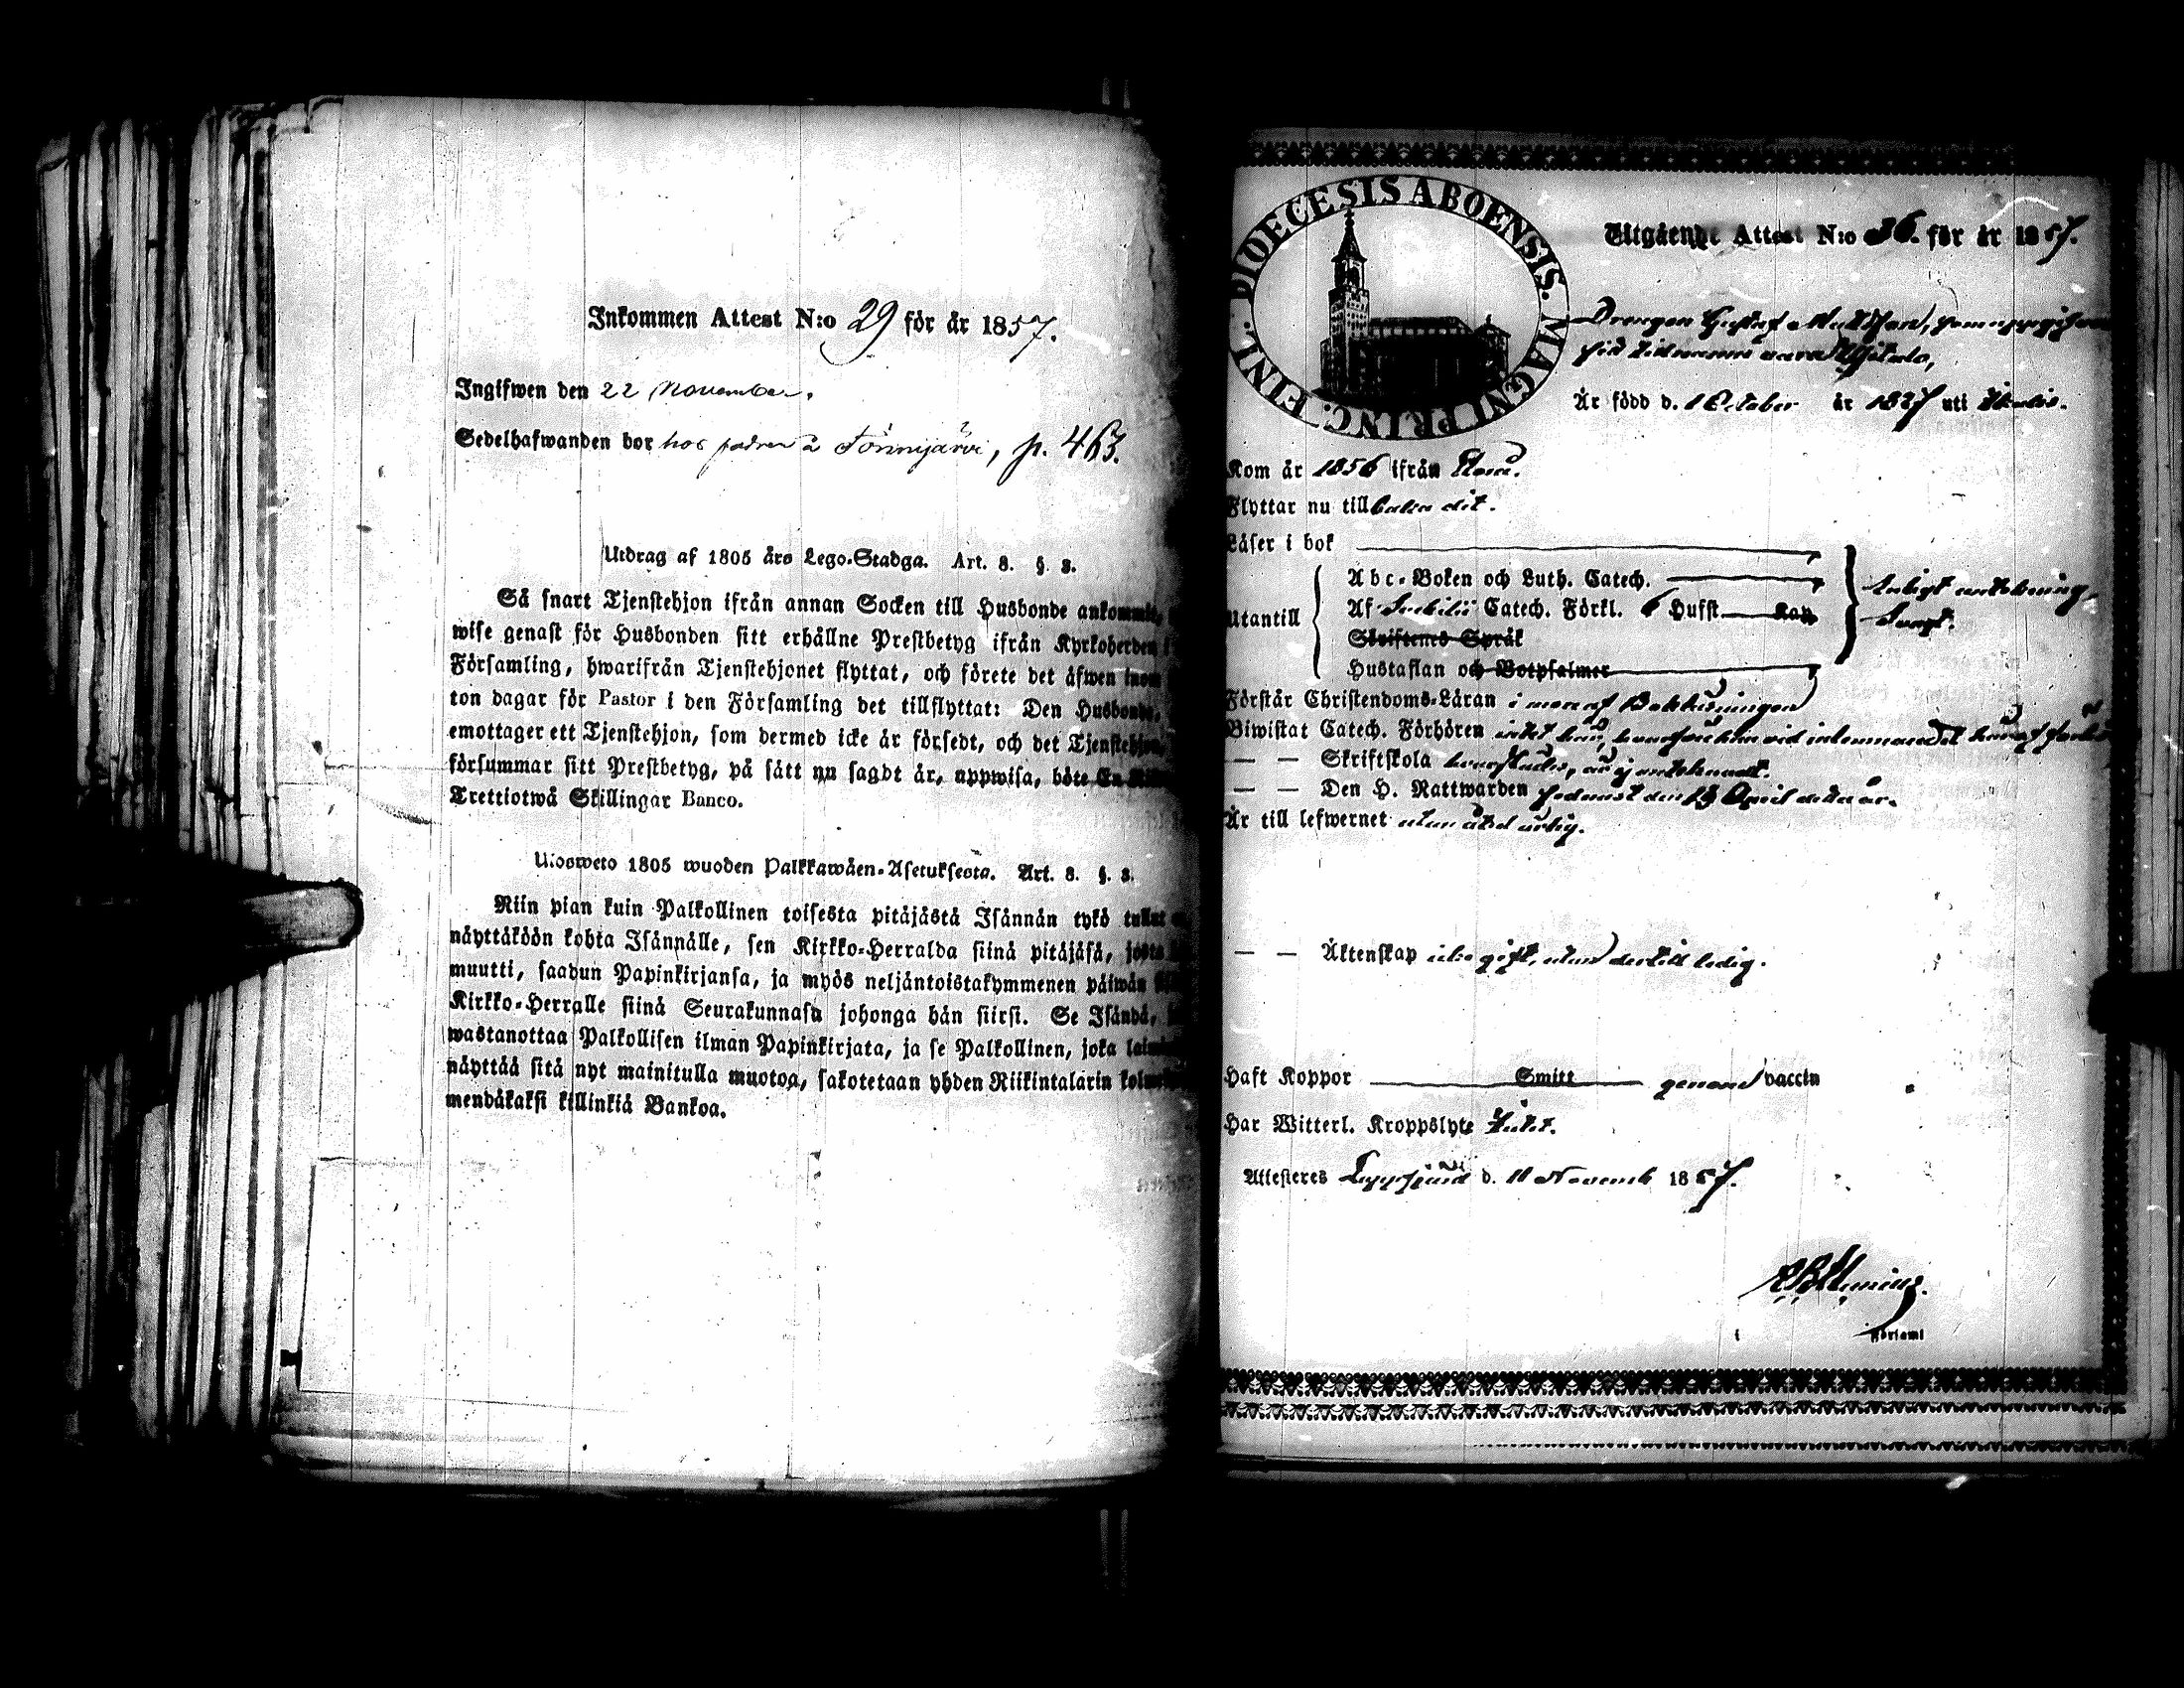 Inkommen Attest N:o 29 för år 1857.
Ingifwen den 22 November.
Sedelhafwanden bor hos fadren å Tönnijärvi, p. 463.
Utdrag af 1805 års Lego-Stadga. Art. 8. §. 3.
Så snart Tjenstehjon ifrån annan Socken till Husbonde ankommit,
wise genast för Husbonden sitt erhållne Prestbetyg ifrån Kyrkoherden i
Församling, hwarifrån Tjenstehjonet flyttat, och förete det äfwen inom
ton dagar för Pastor i den Församling det tillflyttat: Den Husbonde,
emottager ett Tjenstehjon, som dermed icke är försedt, och det Tjenstehjon,
försummar sitt Prestbetyg, på sätt nu sagdt är, uppwisa, böte En
Trettiotwå Skillingar Banco.
Ulosweto 1805 wuoden Palkkawäen-Asetuksesta. Art. 8. §. 3.
Niin pian kuin Palkollinen toisesta pitäjästä Isännän tykö tullut
näyttäköön kohta Isännälle, sen Kirkko-Herralda siinä pitäjäsä, josta
muutti, saadun Papinkirjansa, ja myös neljäntoistakymmenen päiwän
Kirkko-Herralle siinä Seurakunnasa johonga hän siirsi. Se Isändä,
wastanottaa Palkollisen ilman Papinkirjata, ja se Palkollinen, joka
näyttää sitä nyt mainitulla muotoa, sakotetaan yhden Riikintalarin
mendäkaksi killinkiä Bankoa.
DIOECESIS ABOENSIS. MAGNI PRINC. FINL.
Utgående Attest N:o 36. för år 1857.
Drengen Gustaf Mattsson, som uppgifver
sitt vara
Är född d. 1 October år 1827 uti
Kom år 1856 ifrån
Flyttar nu till baka dit.
Läser i bok
Abc-Boken och Luth. Catech.
Utantill Af Svebilii Catech. Förkl. 6 Hufst. Kap
Skriftenes Språk
Hustaflan och Botpsalmer
enligt anteckning
Svagt.
Förstår Christendoms-Läran i mon af Bokläsningen
Biwistat Catech. Förhören
— — Skriftskola ej antecknadt.
— — Den H. Nattwarden sednast den 13 April detta år.
Är till lefwernet utan ärlig.
— — Äktenskap icke gift, utan dertill ledig.
Haft Koppor Smitt genom vaccin
Har Witterl. Kroppslyte
Attesteres d. 11 Novemb 1857.
i Församl